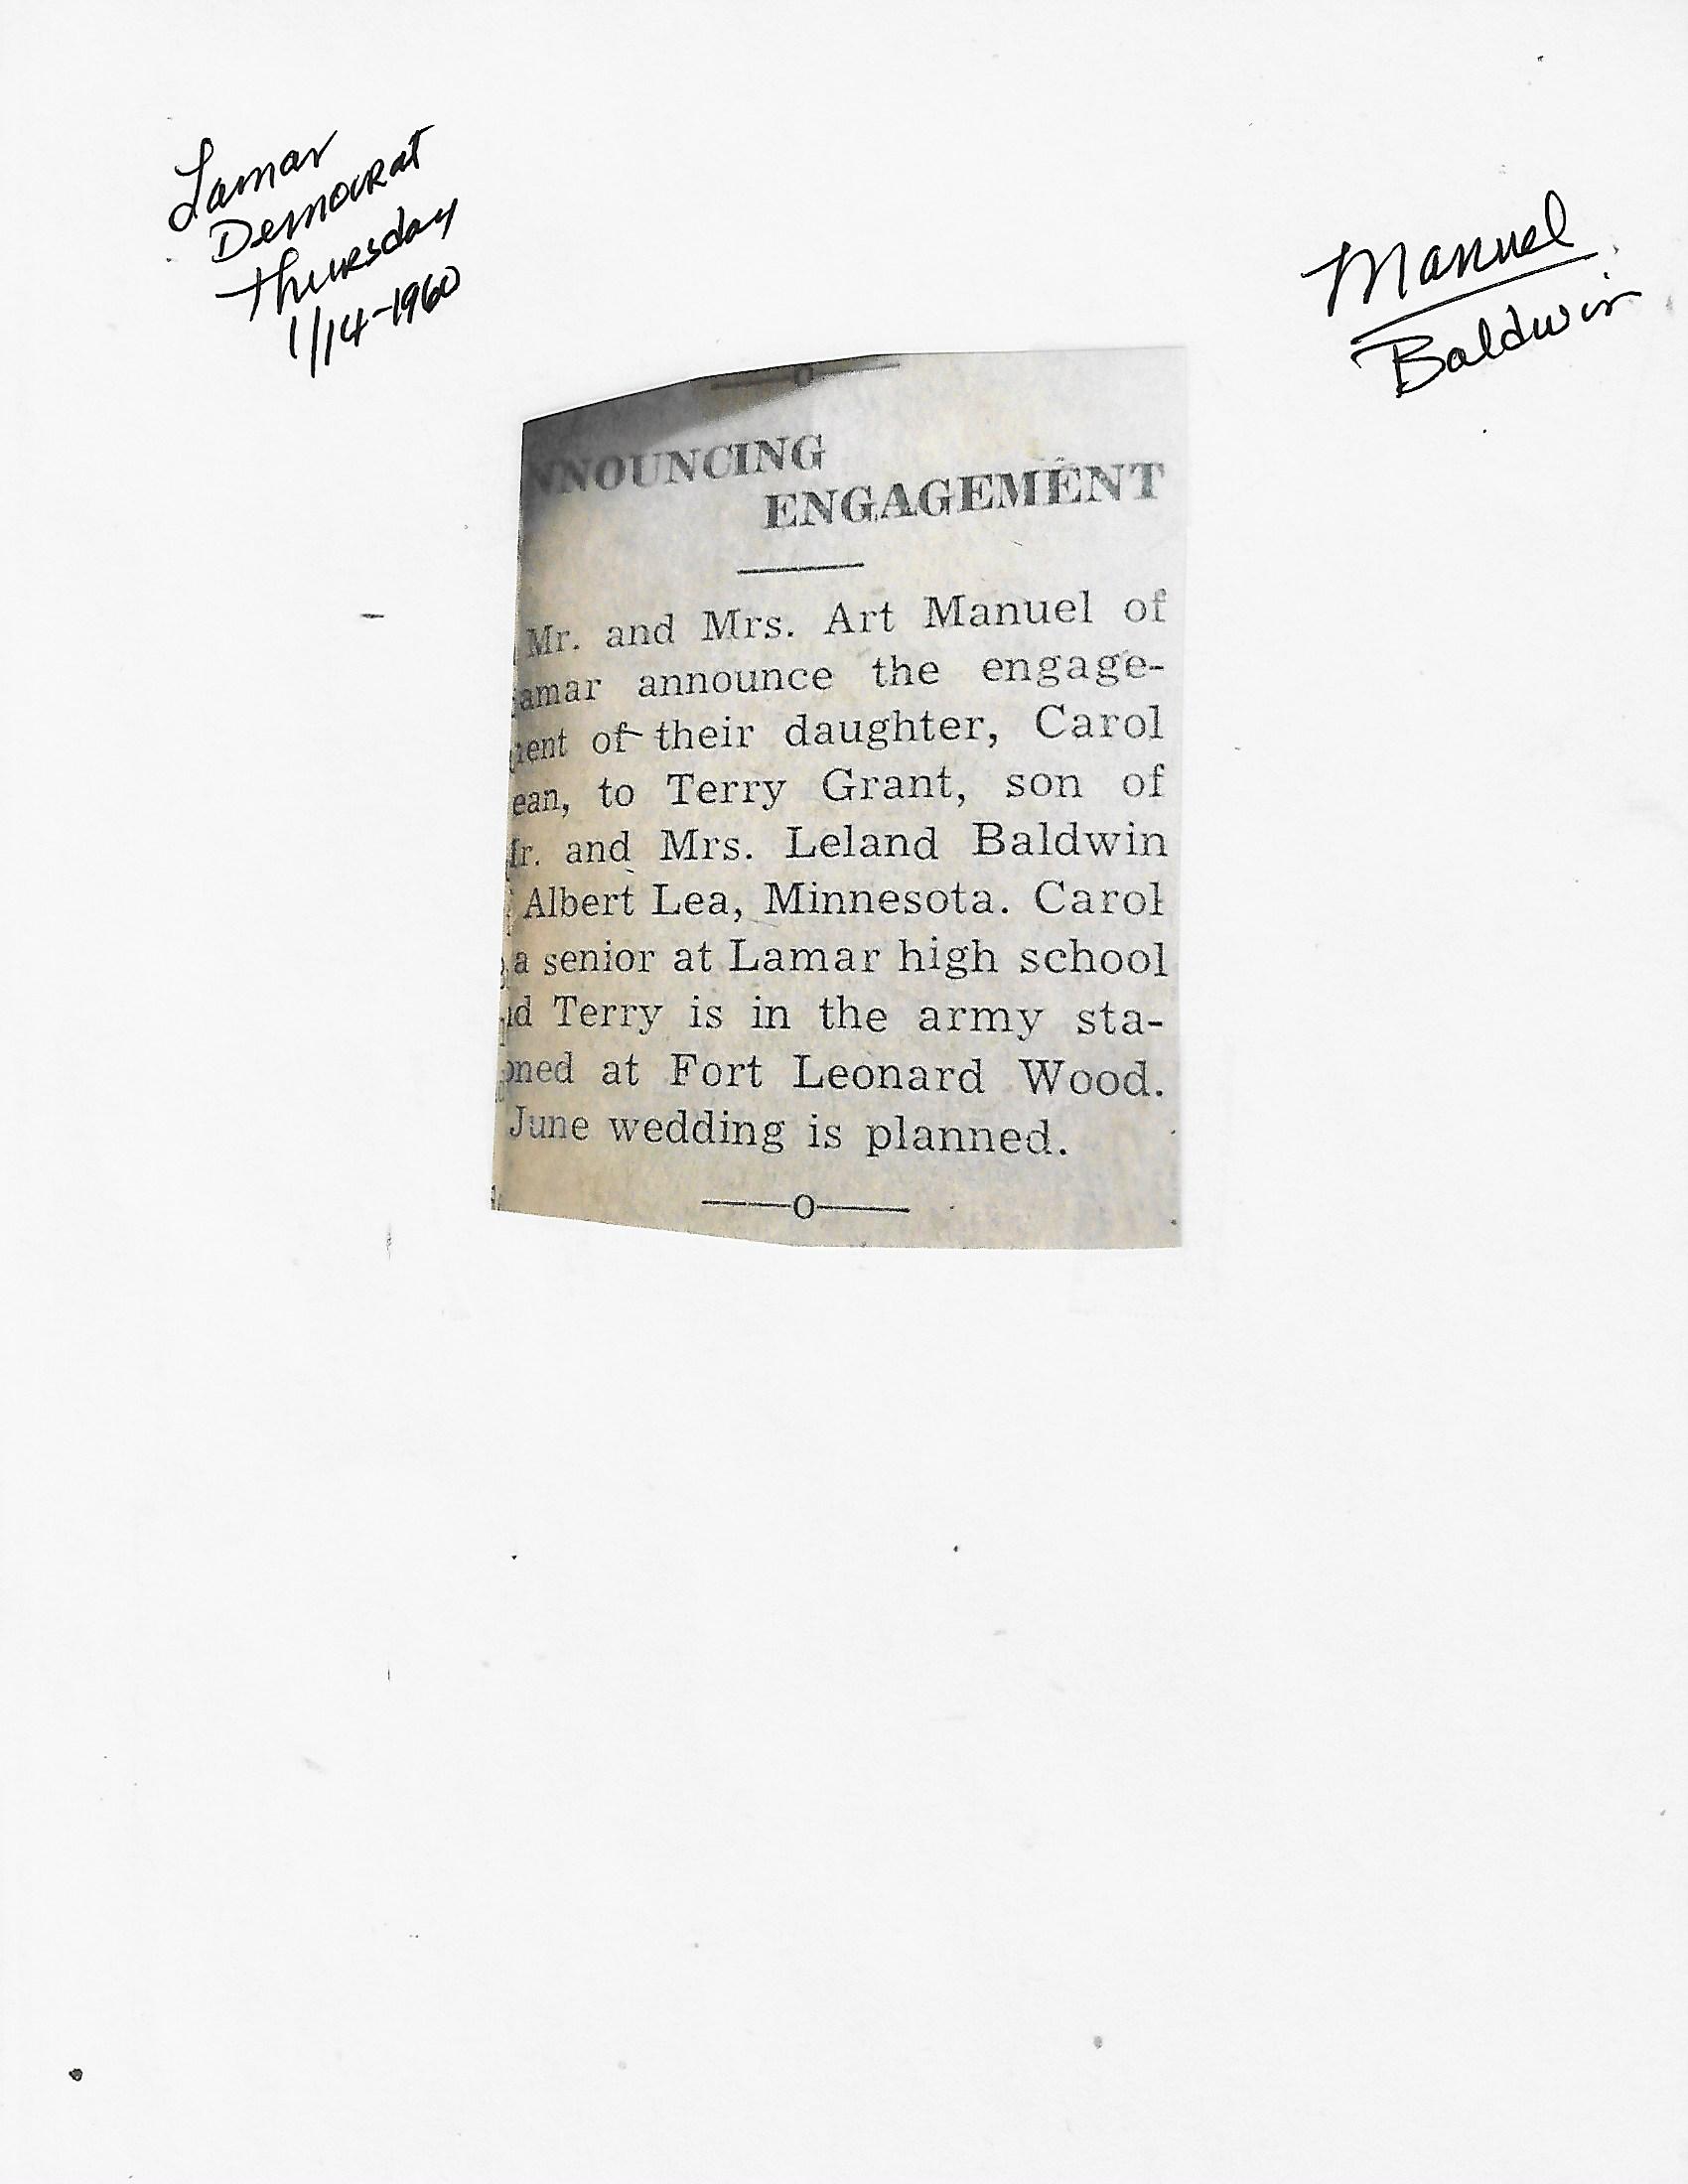 Lamar
Democrat
Thursday
1/14-1960
Manuel
Baldwin
NNOUNCING
ENGAGEMENT
Mr. and Mrs. Art Manuel of
amar announce the engage-
ent of their daughter, Carol
ean, to Terry Grant, son of
r. and Mrs. Leland Baldwin
Albert Lea, Minnesota. Carol
a senior at Lamar high school
d Terry is in the army sta-
oned at Fort Leonard Wood.
June wedding is planned.